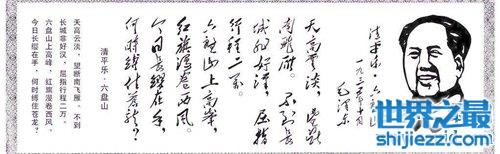 清平乐·六盘山
一九三五年十月
毛泽东
天高云淡，望断
南飞雁。不到长
城非好汉，屈指
行程二万。
六盘山上高峰，
红旗漫卷西风。
今日长缨在手，
何时缚住苍龙？
清平乐·六盘山
天高云淡，望断南飞雁。不到
长城非好汉，屈指行程二万。
六盘山上高峰，红旗漫卷西风。
今日长缨在手，何时缚住苍龙？
世界之最
shijiezz.com